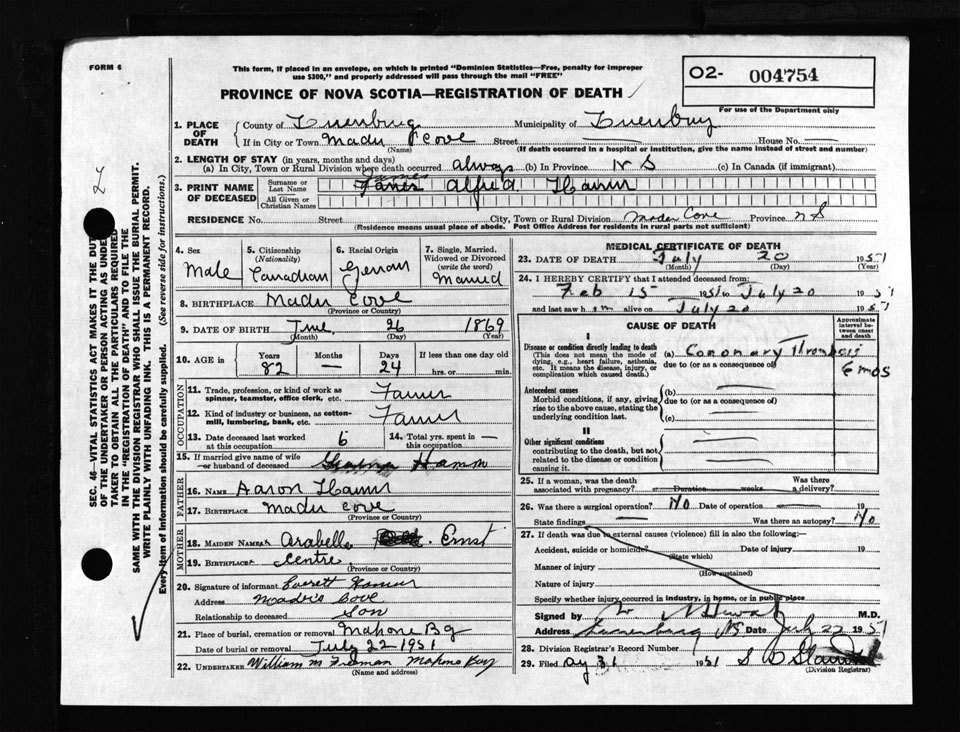 FORM 6
This form, if placed in an envelope, on which is printed "Dominion Statistics—Free, penalty for improper
use $300," and properly addressed will pass through the mail "FREE"
O2- 004754
PROVINCE OF NOVA SCOTIA—REGISTRATION OF DEATH
For use of the Department only
1. PLACE OF DEATH
County of Lunenburg Municipality of Lunenburg
If in City or Town Mader Cove Street House No.
(Name) (If death occurred in a hospital or institution, give the name instead of street and number)
2. LENGTH OF STAY (in years, months and days)
(a) In City, Town or Rural Division where death occurred always (b) In Province N S (c) In Canada (if immigrant)
3. PRINT NAME OF DECEASED
Surname or Last Name James Alfred Hamm
All Given or Christian Names
RESIDENCE No. Street City, Town or Rural Division Mader Cove Province N S
(Residence means usual place of abode. Post Office Address for residents in rural parts not sufficient)
4. Sex
Male
5. Citizenship
(Nationality)
Canadian
6. Racial Origin
German
7. Single, Married,
Widowed or Divorced
(write the word)
Married
8. BIRTHPLACE Mader Cove
(Province or Country)
9. DATE OF BIRTH June 26 1869
(Month) (Day) (Year)
10. AGE in
Years Months Days If less than one day old
82 — 24 hrs. or min.
OCCUPATION
11. Trade, profession, or kind of work as
spinner, teamster, office clerk, etc. Farmer
12. Kind of industry or business, as cotton-
mill, lumbering, bank, etc. Farmer
13. Date deceased last worked
at this occupation 6
14. Total yrs. spent in
this occupation —
15. If married give name of wife
or husband of deceased Hamm
FATHER
16. NAME Aaron Hamm
17. BIRTHPLACE Mader Cove
(Province or Country)
MOTHER
18. MAIDEN NAME Arabella Ernst
19. BIRTHPLACE Centre
(Province or Country)
20. Signature of informant Everett Hamm
Address Mader's Cove
Relationship to deceased Son
21. Place of burial, cremation or removal Mahone By
Date of burial or removal July 22 1951
22. UNDERTAKER William M Mahone Bay
(Name and address)
MEDICAL CERTIFICATE OF DEATH
23. DATE OF DEATH July 20 1951
(Month) (Day) (Year)
24. I HEREBY CERTIFY that I attended deceased from:
Feb 15 1951 to July 20 1951
and last saw him alive on July 20 1951
CAUSE OF DEATH
Approximate interval between onset and death
Disease or condition directly leading to death
(This does not mean the mode of
dying, e.g., heart failure, asthenia,
etc. It means the disease, injury, or
complication which caused death.)
(a) Coronary Thrombosis
due to (or as a consequence of)
6 mos
Antecedent causes
Morbid conditions, if any, giving
rise to the above cause, stating the
underlying condition last.
(b)
due to (or as a consequence of)
(c)
II
Other significant conditions
contributing to the death, but not
related to the disease or condition
causing it.
25. If a woman, was the death
associated with pregnancy? Duration weeks
Was there
a delivery?
26. Was there a surgical operation? No Date of operation 19
State findings — Was there an autopsy? No
27. If death was due to external causes (violence) fill in also the following:—
Accident, suicide or homicide? Date of injury 19
(State which)
Manner of injury
(How sustained)
Nature of injury
Specify whether injury occurred in industry, in home, or in public place
Signed by M.D.
Address Lunenburg NS Date July 22 1951
28. Division Registrar's Record Number
29. Filed 31 1951
(Division Registrar)
SEC. 46—VITAL STATISTICS ACT MAKES IT THE DUTY
OF THE UNDERTAKER OR PERSON ACTING AS UNDER-
TAKER TO OBTAIN ALL THE PARTICULARS REQUIRED
IN THE "REGISTRATION OF DEATH" AND TO FILE THE
SAME WITH THE DIVISION REGISTRAR WHO SHALL ISSUE THE BURIAL PERMIT.
WRITE PLAINLY WITH UNFADING INK. THIS IS A PERMANENT RECORD.
Every item of Information should be carefully supplied. (See reverse side for instructions.)